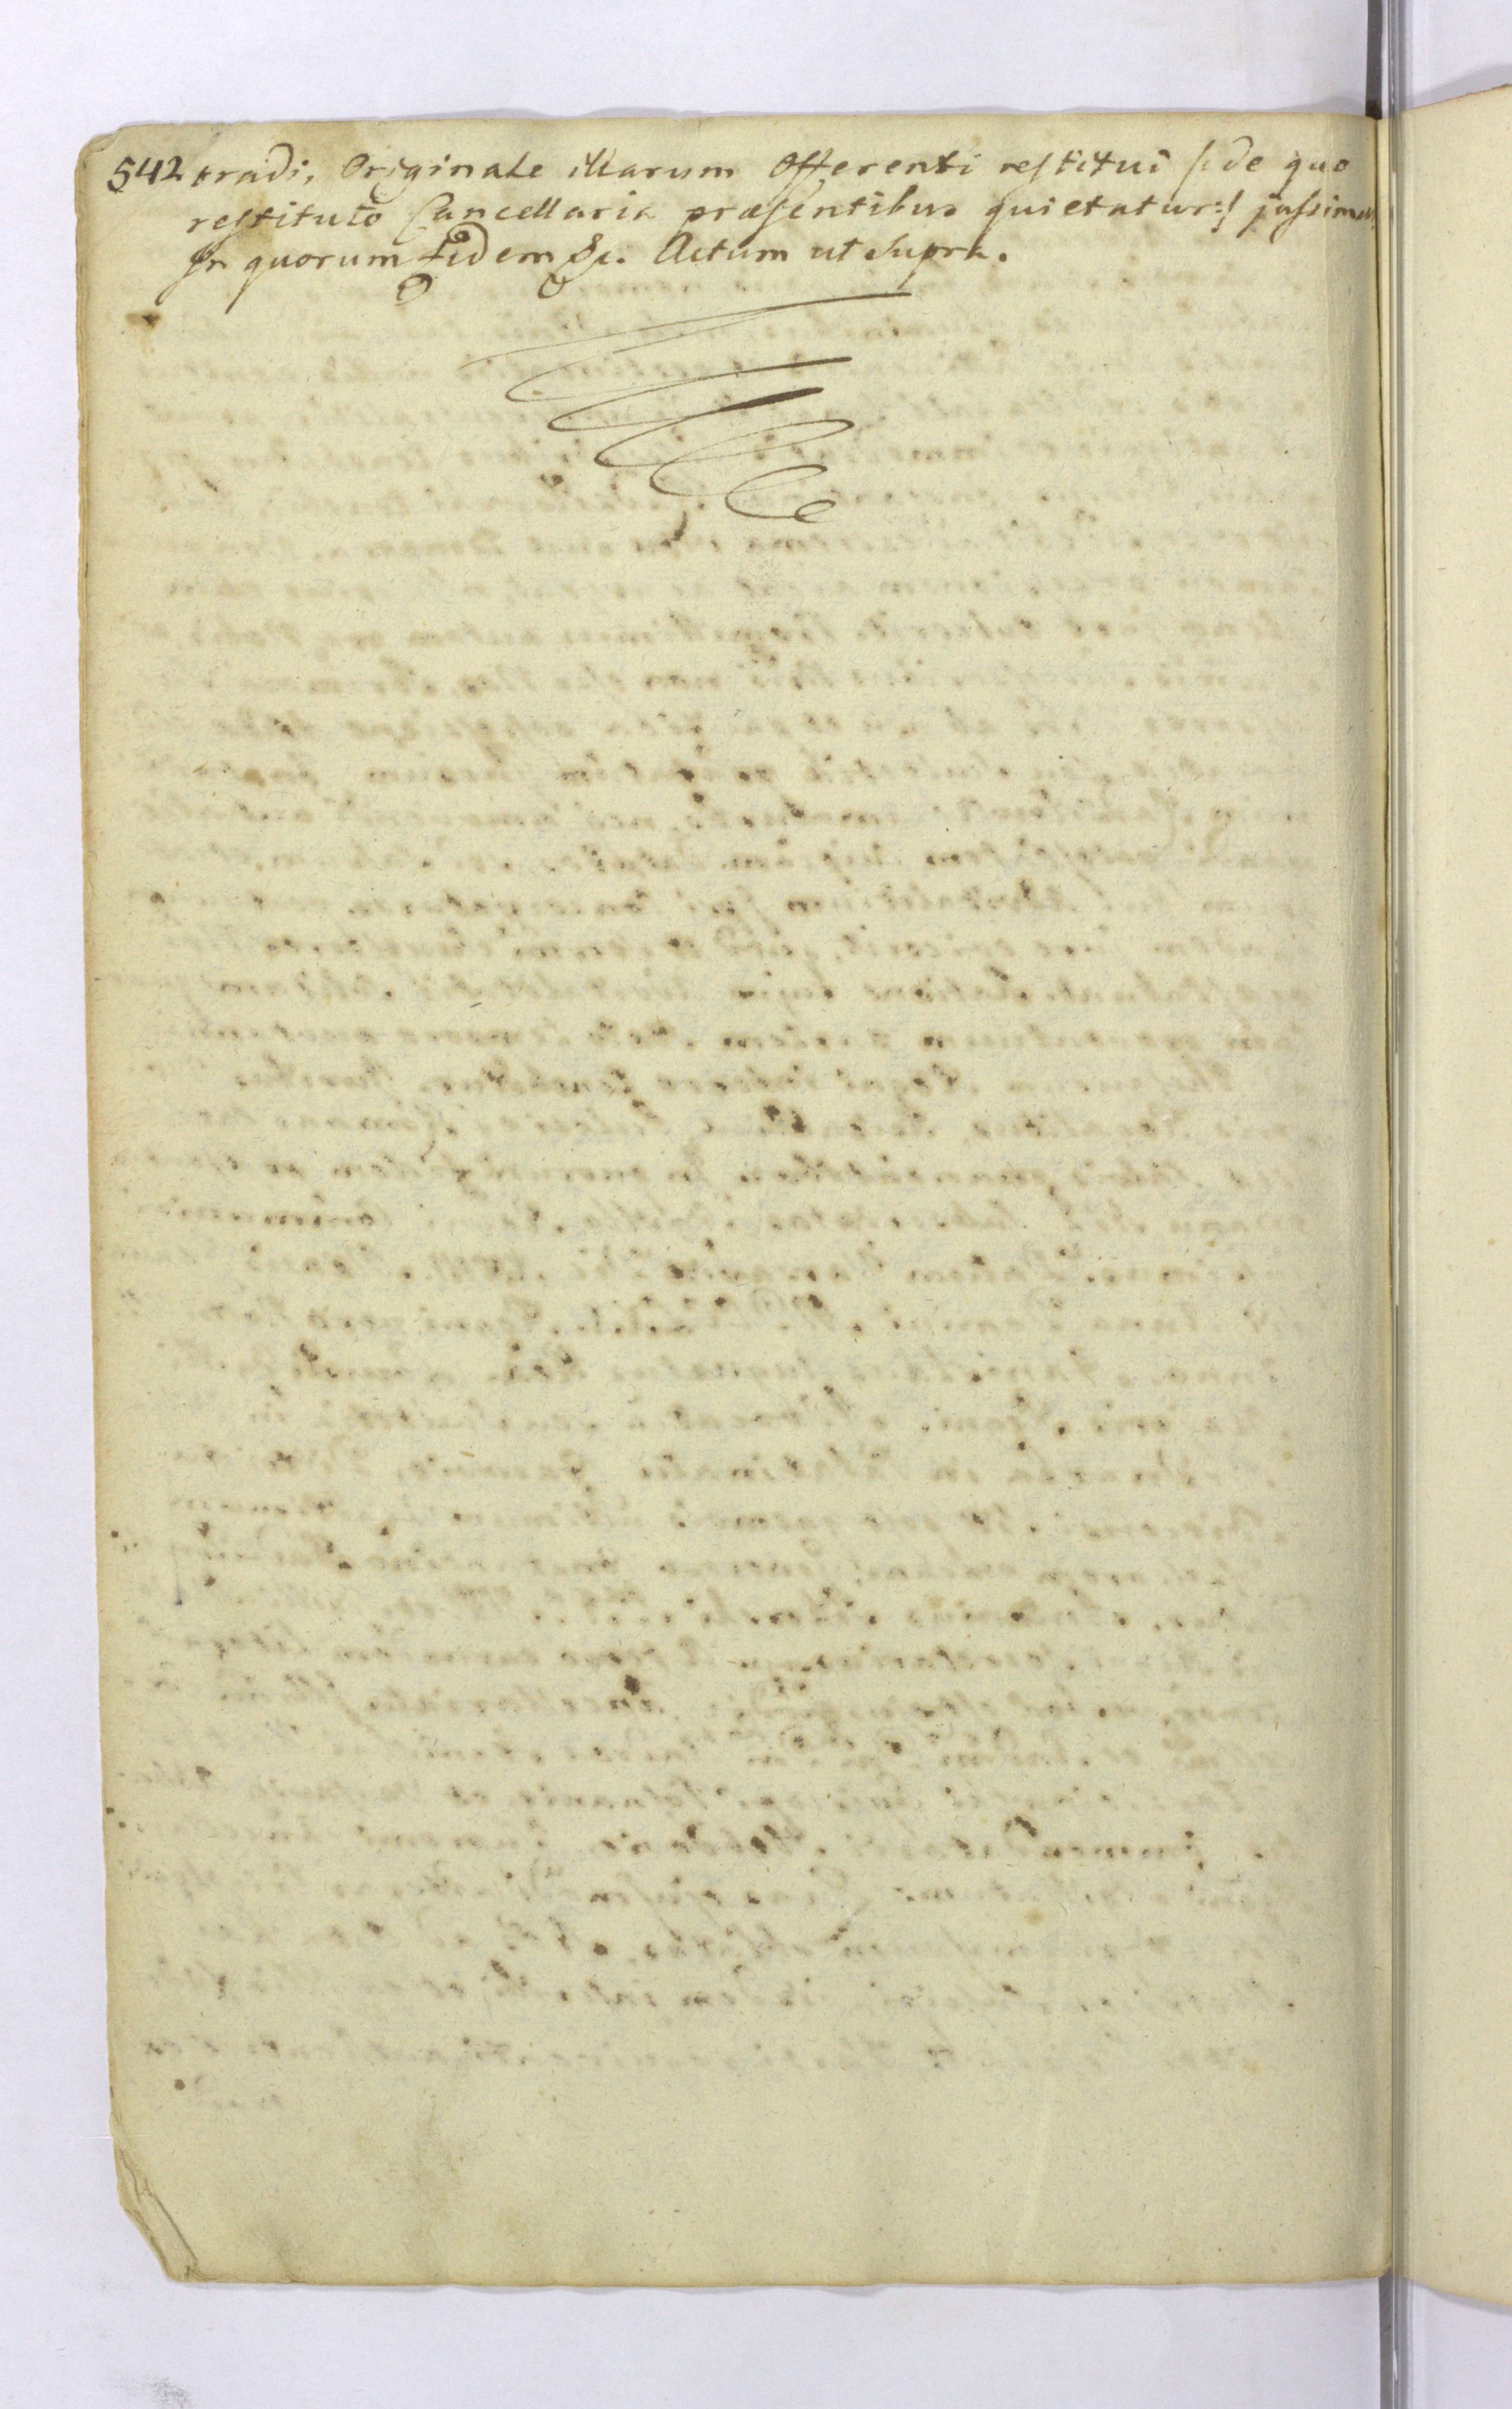 542 tradi, Originale illarum Offerenti restitui /:de quo
restituto Cancellaria præsentibus quietatur:/ jussimus
In quorum Fidem &c. Actum ut Supra.